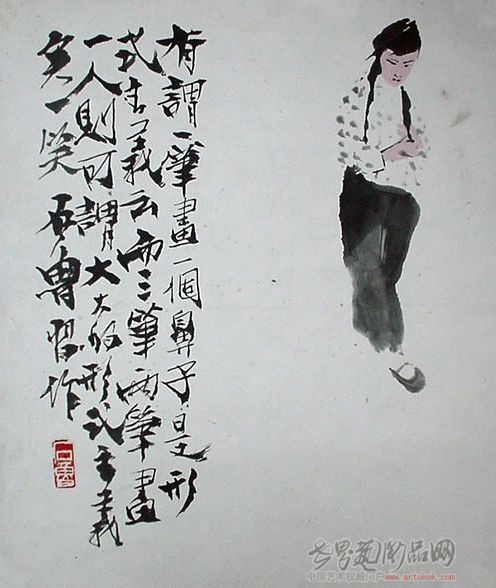 有謂一筆畫一個鼻子是形
式主義云而三筆兩筆畫
一人則可謂大大的形式主義
矣一笑 石魯習作
石魯
艺术品网
中国艺术权威门户 www.artokok.com